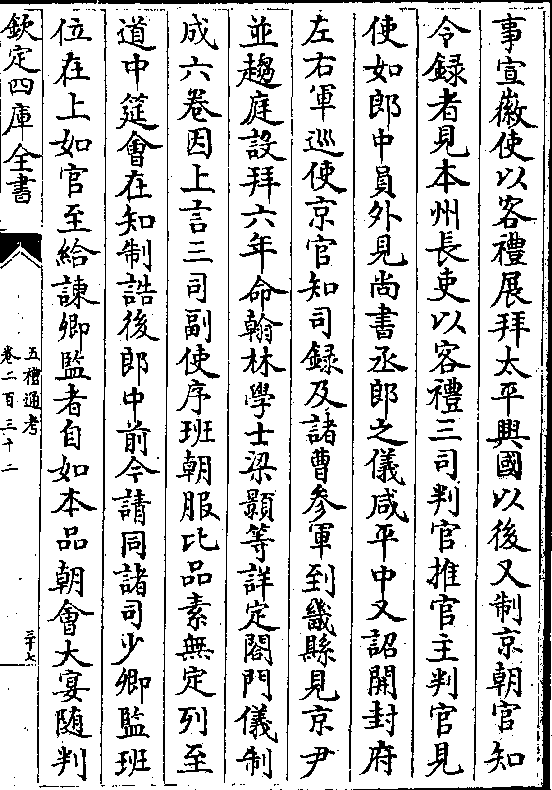 事宣徽使以客禮展拜太平興國以後又制京朝官知
令録者見本州長吏以客禮三司判官推官主判官見
使如郎中員外見尚書丞郎之儀咸平中又詔開封府
左右軍巡使京官知司録及諸曹參軍到畿縣見京尹
並趨庭設拜六年命翰林學士梁顥等詳定閤門儀制
成六卷因上言三司副使序班朝服比品素無定列至
道中筵會在知制誥後郎中前今請同諸司少卿監班
位在上如官至給諫卿監者自如本品朝會大宴随判
欽定四庫全書
五禮通考
卷二百三十二
三十七